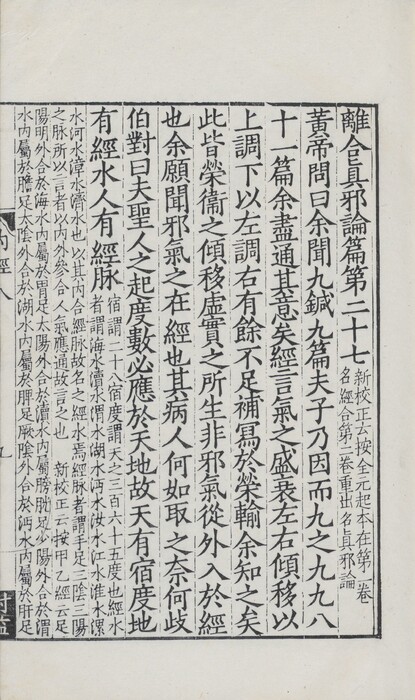 離合眞邪論篇第二十七
新校正云按全元起本在第一卷
名經合第二卷重出名眞邪論
黄帝問曰余聞九鍼九篇夫子乃因而九之九九八
十一篇余盡通其意矣經言氣之盛衰左右傾移以
上調下以左調右有餘不足補寫於榮輸余知之矣
此皆榮衞之傾移虛實之所生非邪氣從外入於經
也余願聞邪氣之在經也其病人何如取之奈何歧
伯對曰夫聖人之起度數必應於天地故天有宿度地
有經水人有經脉
宿謂二十八宿度謂天之三百六十五度也經水
者謂海水瀆水渭水湖水沔水汝水江水淮水漯
水河水漳水濟水也以其內合經脉故名之經水焉經脉者謂手足三陰三陽
之脉所以言者以內外參合人氣應通故言之也 新校正云按甲乙經云足
陽明外合於海水內屬於胃足太陽外合於瀆水內屬膀胱足少陽外合於渭
水內屬於膽足太陰外合於湖水內屬於脾足厥陰外合於沔水內屬於肝足
內經八
九